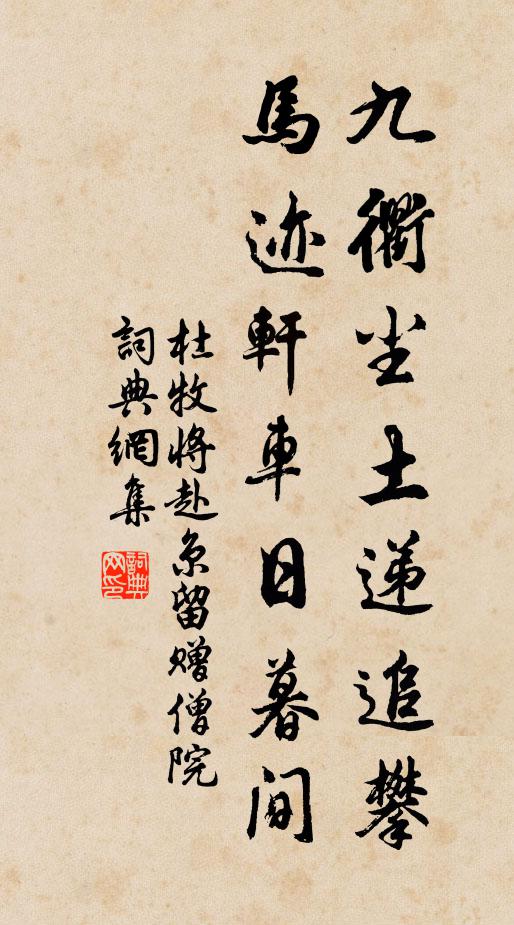 九衢尘土递追攀
馬迹軒車日暮间
杜牧将赴京留赠僧院
詞典網集
詞典网印